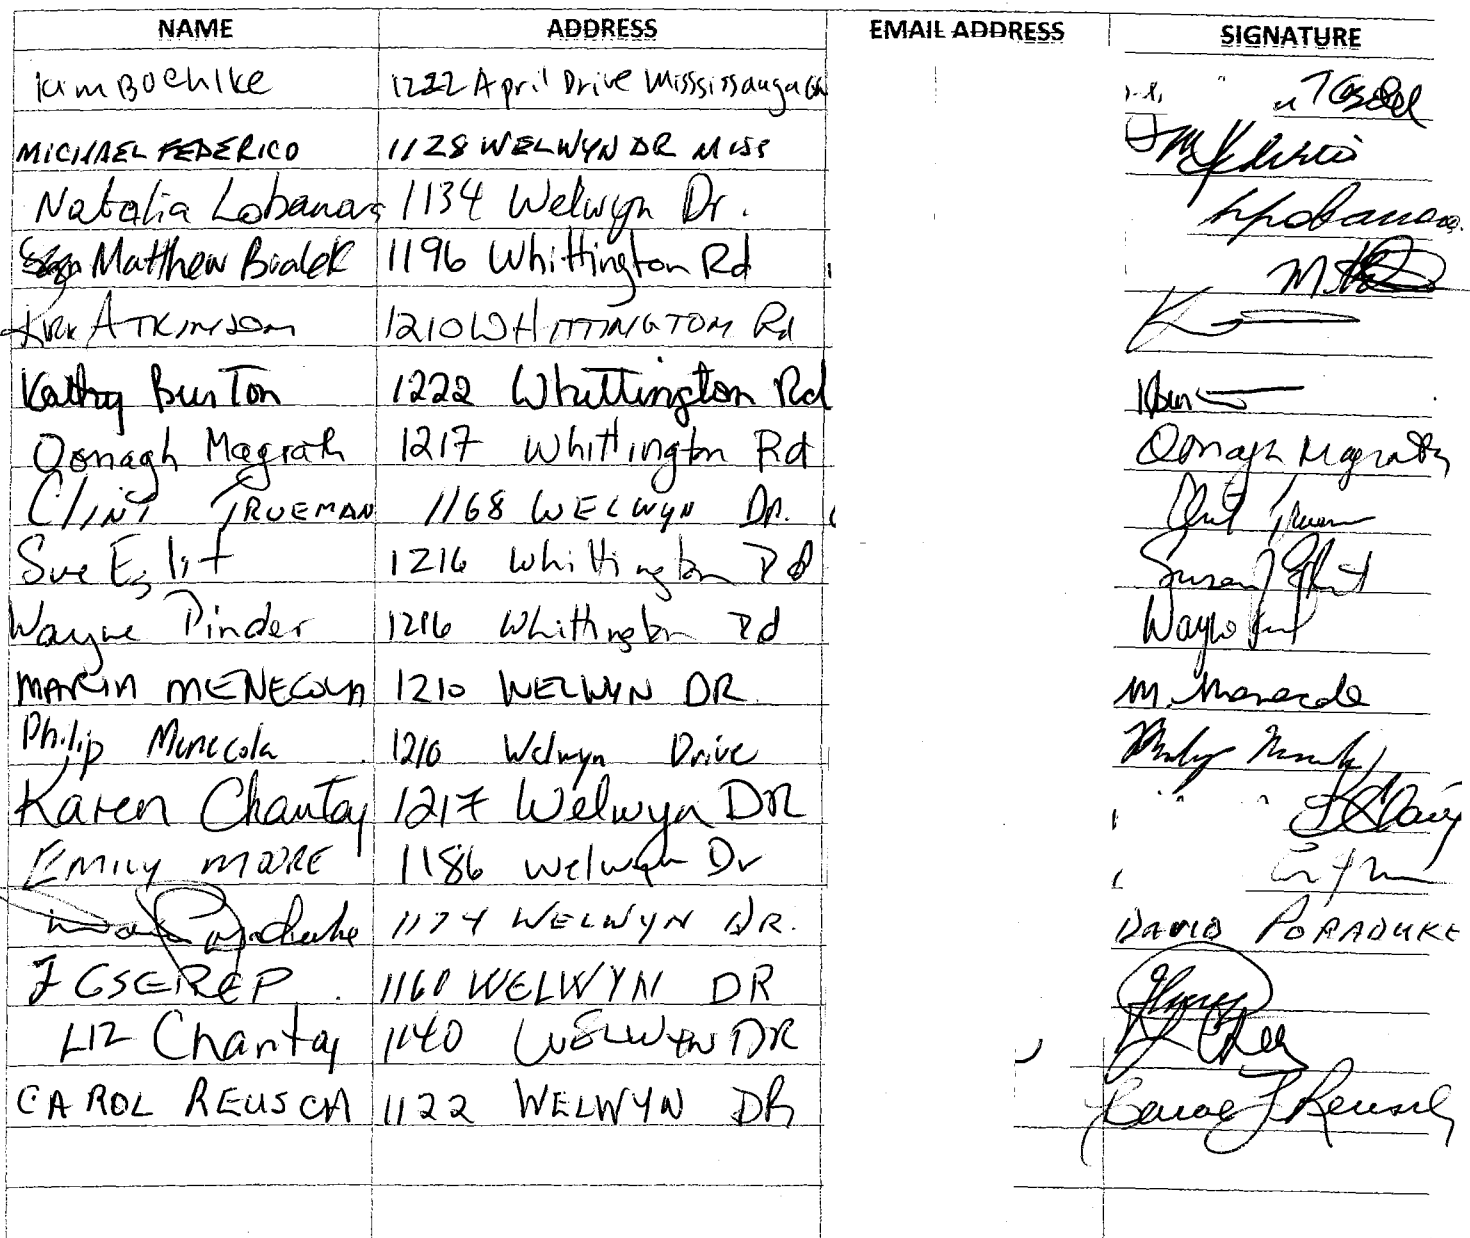 NAME ADDRESS EMAIL ADDRESS SIGNATURE
Kim Boehlke 1222 April Drive Mississauga
MICHAEL FEDERICO 1128 WELWYN DR MISS
Natalia Lobanova 1134 Welwyn Dr.
Matthew Bialek 1196 Whittington Rd
Kirk ATKINSON 1210 WHITTINGTON Rd
Kathy Burton 1222 Whittington Rd
Oonagh Magrath 1217 Whittington Rd Oonagh Magrath
Clint TRUEMAN 1168 WELWYN DR. Clint Trueman
Sue Eglit 1216 Whittington Rd Susan Eglit
Wayne Pinder 1216 Whittington Rd Wayne
MARIA MENECOLA 1210 WELWYN DR. M. Menecola
Philip Menecola 1210 Welwyn Drive
Karen Chantaj 1217 Welwyn DR
EMILY MOORE 1186 Welwyn Dr
1174 WELWYN DR. DAVID PORADUKE
J GSEREP 1160 WELWYN DR
LIZ Chantaj 1140 WELWYN DR
CAROL REUSCH 1122 WELWYN DR Carol J Reusch